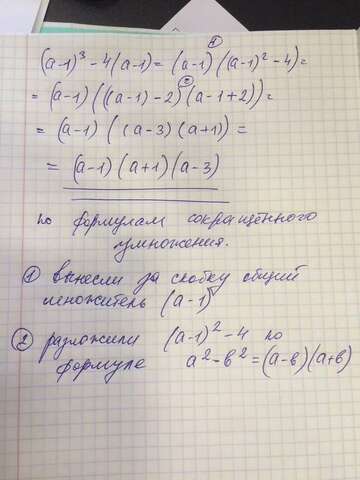 ①
(a-1)³-4(a-1)=(a-1)((a-1)²-4)=
②
=(a-1)(((a-1)-2)(a-1+2))=
=(a-1)((a-3)(a+1))=
=(a-1)(a+1)(a-3)
по формулам сокращённого
умножения.
① вынесли за скобку общий
множитель (a-1)
② разложили (a-1)²-4 по
формуле a²-в²=(a-в)(a+в)